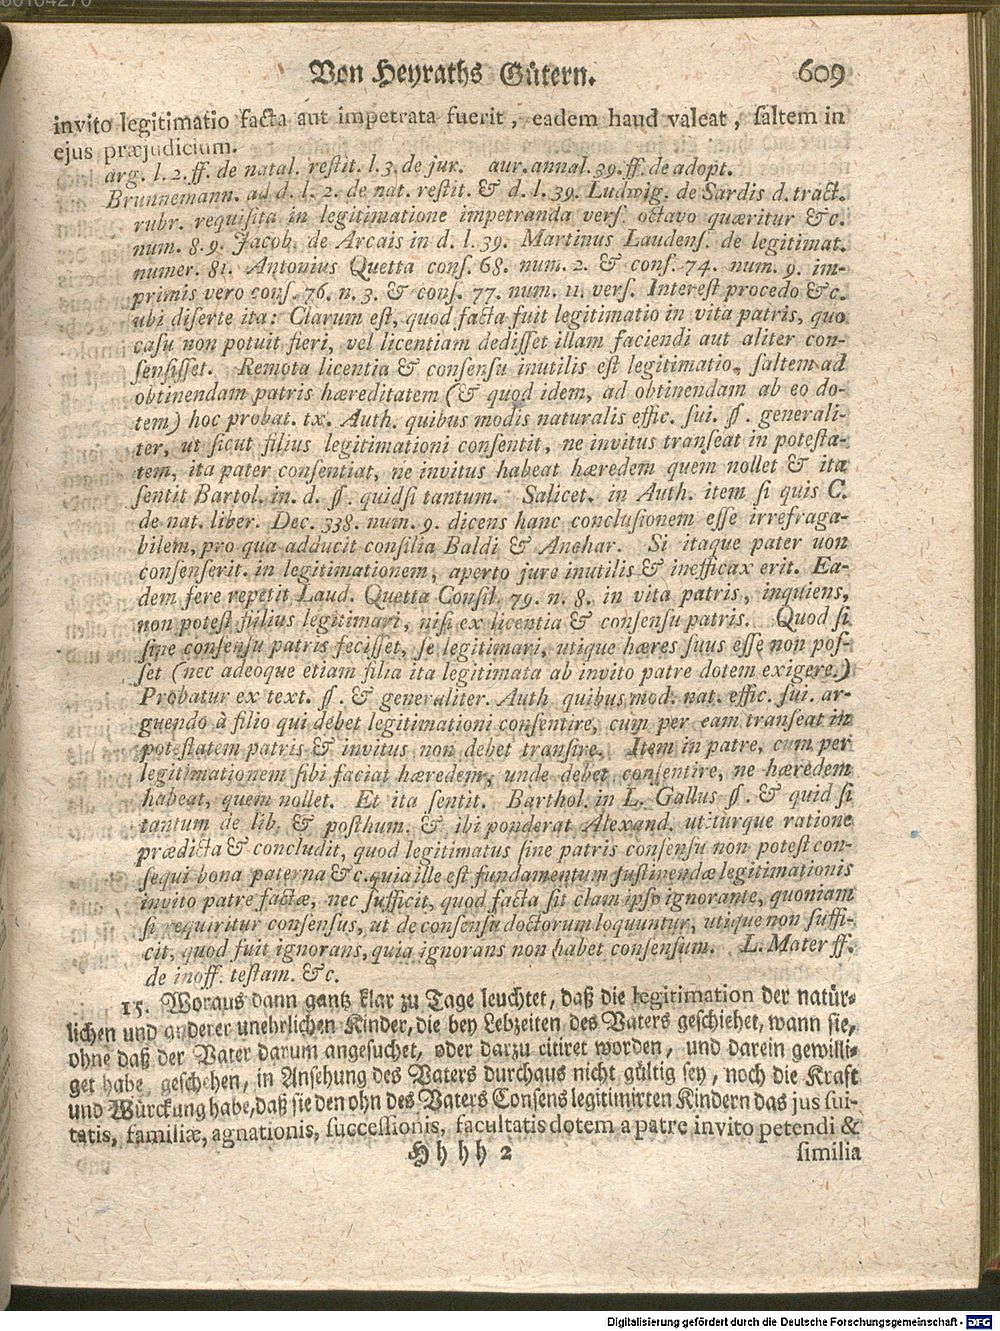 Von Heyraths Gütern. 609
invito legitimatio facta aut impetrata fuerit, eadem haud valeat, saltem in
ejus præjudicium.
arg. l. 2. ff. de natal. restit. l. 3. de jur. aur. annal. 39. ff. de adopt.
Brunnemann. ad d. l. 2. de nat. restit. & d. l. 39. Ludwig. de Sardis d. tract.
rubr. requisita in legitimatione impetranda vers. octavo quæritur &c.
num. 8. 9. Jacob. de Arcais in d. l. 39. Martinus Laudens. de legitimat.
numer. 81. Antonius Quetta cons. 68. num. 2. & cons. 74. num. 9. im-
primis vero cons. 76. n. 3. & cons. 77. num. 11. vers. Interest procedo &c.
ubi diserte ita: Clarum est, quod facta fuit legitimatio in vita patris, quo
casu non potuit fieri, vel licentiam dedisset illam faciendi aut aliter con-
sensisset. Remota licentia & consensu inutilis est legitimatio, saltem ad
obtinendam patris hæreditatem (& quod idem, ad obtinendam ab eo do-
tem) hoc probat. tx. Auth. quibus modis naturalis effic. sui. §. generali-
ter, ut sicut filius legitimationi consentit, ne invitus transeat in potesta-
tem, ita pater consentiat, ne invitus habeat hæredem quem nollet & ita
sentit Bartol. in. d. §. quidsi tantum. Salicet. in Auth. item si quis C.
de nat. liber. Dec. 338. num. 9. dicens hanc conclusionem esse irrefraga-
bilem, pro qua adducit consilia Baldi & Anchar. Si itaque pater uon
consenserit. in legitimationem, aperto jure inutilis & inefficax erit. Ea-
dem fere repetit Laud. Quetta Consil. 79. n. 8. in vita patris, inquiens,
non potest filius legitimari, nisi ex licentia & consensu patris. Quod si
sine consensu patris fecisset, se legitimari, utique hæres suus esse non pos-
set (nec adeoque etiam filia ita legitimata ab invito patre dotem exigere.)
Probatur ex text. §. & generaliter. Auth quibus mod. nat. effic. sui. ar-
guendo à filio qui debet legitimationi consentire, cum per eam transeat in
potestatem patris & invitus non debet transire. Item in patre, cum per
legitimationem sibi faciat hæredem, unde debet consentire, ne hæredem
habeat, quem nollet. Et ita sentit. Barthol. in L. Gallus §. & quid si
tantum de lib. & posthum. & ibi ponderat Alexand. utiturque ratione
prædicta & concludit, quod legitimatus sine patris consensu non potest con-
sequi bona paterna &c. quia ille est fundamentum sustinendæ legitimationis
invito patre factæ, nec sufficit, quod facta sit clam ipso ignorante, quoniam
si requiritur consensus, ut de consensu doctorum loquuntur, utique non suffi-
cit, quod fuit ignorans, quia ignorans non habet consensum. L. Mater ff.
de inoff. testam. &c.
15. Woraus dann gantz klar zu Tage leuchtet, daß die legitimation der natür-
lichen und anderer unehrlichen Kinder, die bey Lebzeiten des Vaters geschiehet, wann sie,
ohne daß der Vater darum angesuchet, oder darzu citiret worden, und darein gewilli-
get habe, geschehen, in Ansehung des Vaters durchaus nicht gültig sey, noch die Kraft
und Würckung habe, daß sie den ohn des Vaters Consens legitimirten Kindern das jus sui-
tatis, familiæ, agnationis, successionis, facultatis dotem a patre invito petendi &
Hhhh 2 similia
Digitalisierung gefördert durch die Deutsche Forschungsgemeinschaft - DFG